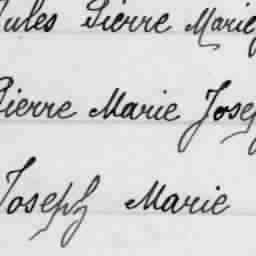 Jules Pierre Marie
Pierre Marie Joseph
Joseph Marie